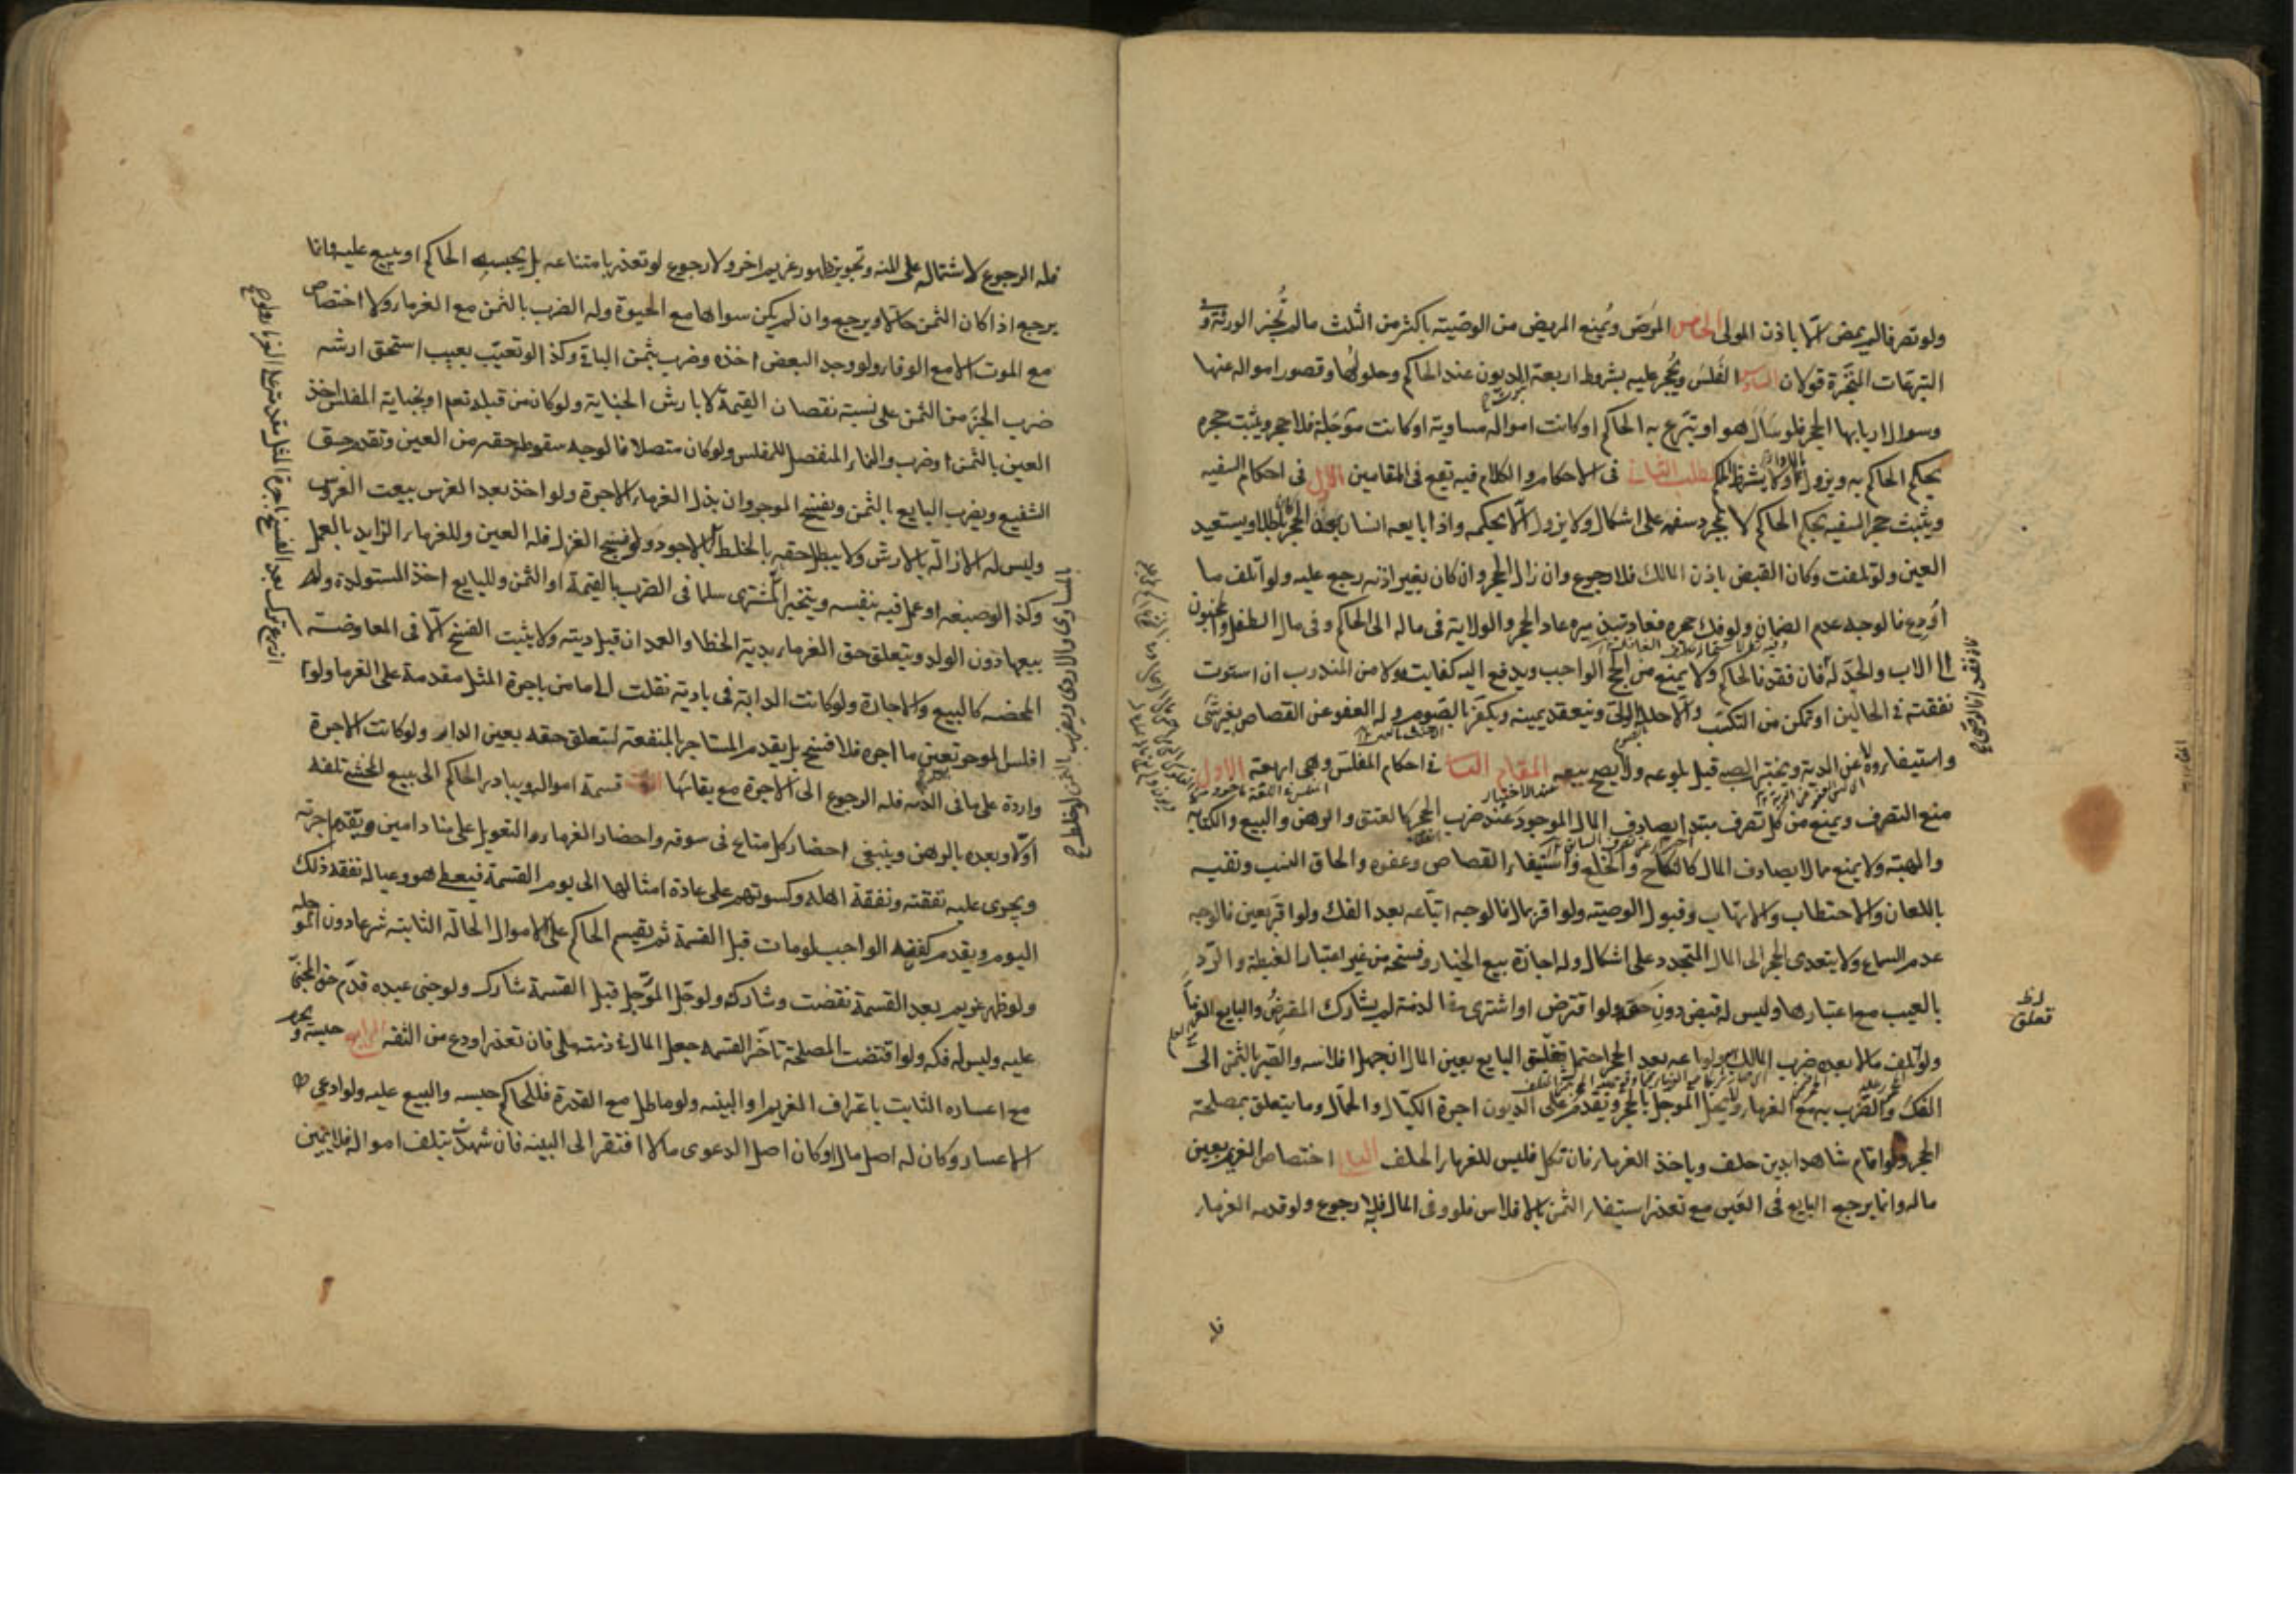 ولو تصرفا لم يمض الا باذن المولى الخامس المرض ويمنع المريض من الوصية باكثر من الثلث ما لم تجز الورثة وفي
التبرعات المنجزة قولان السادس الفلس ويحجر عليه بشروط اربعة الديون عند الحاكم وحلولها وقصور امواله عنها
وسوال اربابها الحجر فلو سأل هو او تبرع به الحاكم او كانت امواله مساوية او كانت مؤجلة فلا حجر ويثبت حجره
بحكم الحاكم به ويزول بالاداء ولا يشترط الحكم المطلب الثاني في الاحكام والكلام فيه يقع في المقامين الاول في احكام السفيه
ويثبت حجر السفيه بحكم الحاكم لا بمجرد سفهه على اشكال ولا يزول الا بحكمه واذا بايعه انسان بعد الحجر بطل ويستعيد
العين ولو تلفت وكان القبض باذن المالك فلا رجوع وان زال الحجر وان كان بغير اذنه رجع عليه ولو اتلف ما
أودع فالوجه عدم الضمان ولو فك حجره فعاد تبذيره عاد الحجر والولاية في ماله الى الحاكم وفي مال الطفل والمجنون
الى الاب والجد له فان فقدا فالحاكم ولا يمنع من الحج الواجب ويدفع اليه كفايته ولا من المندوب ان استوت
نفقته في الحالين او تمكن من التكسب والا حلله الولي وينعقد يمينه ويكفر بالصوم وله العفو عن القصاص بغير شئ
واستيفاؤه لا عن الدية ويختبر الصبي قبل بلوغه ولا يصح بيعه المقام الثاني في احكام المفلس وهي اربعة الاول
منع التصرف ويمنع من كل تصرف مبتدا يصادف المال الموجود عند ضرب الحجر كالعتق والرهن والبيع والكتابة
والهبة ولا يمنع مما لا يصادف المال كالنكاح والخلع واستيفاء القصاص وعفوه والحاق النسب ونفيه
باللعان والاحتطاب والاتهاب وقبول الوصية ولو اقر بمال فالوجه اتباعه بعد الفك ولو اقر بعين فالوجه
عدم السماع ولا يتعدى الحجر الى المال المتجدد على اشكال وله اجازة بيع الخيار وفسخه من غير اعتبار الغبطة والرد
بالعيب مع اعتبارها وليس له قبض دون حقه ولو اقترض او اشترى في الذمة لم يشارك المقرض والبايع الغرماء
ولو اتلف مالا بعده ضرب المالك ولو باعه بعد الحجر احتمل تعلق البايع بعين المال ان جهل افلاسه والصبر بالثمن الى
الفك والضرب به مع الغرماء ولا يحل المؤجل بالحجر وتقدم على الديون اجرة الكيال والحمال وما يتعلق بمصلحة
الحجر ولو اقام شاهدا بدين حلف وياخذ الغرماء فان نكل فليس للغرماء الحلف الثاني اختصاص الغريم بعين
ماله وانما يرجع البايع في العين مع تعذر استيفاء الثمن بالافلاس فلو وفى المال فلا رجوع ولو قدمه الغرماء
لظ
تعلق
فله الرجوع لاشتماله على المنة وتجويز ظهور غريم اخر ولا رجوع لو تعذر بامتناعه بل يحبسه الحاكم او يبيع عليه وانما
يرجع اذا كان الثمن حالا ويرجع وان لم يكن سواها مع الحيوة وله الضرب بالثمن مع الغرماء ولا اختصاص
مع الموت الا مع الوفاء ولو وجد البعض اخذه وضرب بثمن الباقي وكذا لو تعيب بعيب استحق ارشه
ضرب الجزء من الثمن على نسبة نقصان القيمة لا بارش الجناية ولو كان من قبله تعم او بجناية المفلس اخذ
العين بالثمن او ضرب والنماء المنفصل للمفلس ولو كان متصلا فالوجه سقوط حقه من العين وتقدم حق
الشفيع ويضرب البايع بالثمن ويفسخ الموجر وان بذل الغرماء الاجرة ولو اخذ بعد الغرس بيعت الغروس
وليس له الازالة بالارش ولا يبطل حقه بالخلط الا بالاجود ولو نسج الغزل فله العين وللغرماء الزايد بالعمل
وكذا لو صبغه او عمل فيه بنفسه ويتخير المشترى سلما في الضرب بالقيمة او الثمن وللبايع اخذ المستولدة وله
بيعها دون الولد ويتعلق حق الغرماء بدية الخطا والعمد ان قبل ديته ولا يثبت الفسخ الا في المعاوضة
المحضه كالبيع والاجارة ولو كانت الدابة في بادية نقلت الى مامن باجرة المثل مقدمة على الغرما ولو
افلس الموجر تعين ما اجره فلا فسخ بل يقدم المستاجر بالمنفعة لتعلق حقه بعين الدار ولو كانت الاجرة
واردة على ما في الذمه فله الرجوع الى الاجرة مع بقائها الثالث قسمة امواله ويبادر الحاكم الى بيع المخشي تلفه
اولا وبعده بالرهن وينبغي احضار كل متاع في سوقه واحضار الغرماء والتعويل على مناد امين ويقدم اجرته
ويجرى عليه نفقته ونفقة اهله وكسوتهم على عادة امثالها الى يوم القسمة فيعطى هو وعياله نفقة ذلك
اليوم ويقدم كفنه الواجب لو مات قبل القسمة ثم يقسم الحاكم على الاموال الحالة الثابتة شرعا دون المؤجله
ولو ظهر غريم بعد القسمة نقضت وشاركه ولو حل المؤجل قبل القسمة شارك ولو جنى عبده قدم حق المجني
عليه وليس له فكه ولو اقتضت المصلحة تاخر القسمه جعل المال في ذمة ملي فان تعذر اودع من الثقه الرابع حبسه ويحرم
مع اعساره الثابت باعتراف الغريم او البينه ولو ماطل مع القدرة فللحاكم حبسه والبيع عليه ولو ادعى
الاعسار وكان له اصل مال او كان اصل الدعوى مالا افتقر الى البينه فان شهدت بتلف امواله فلا يمين